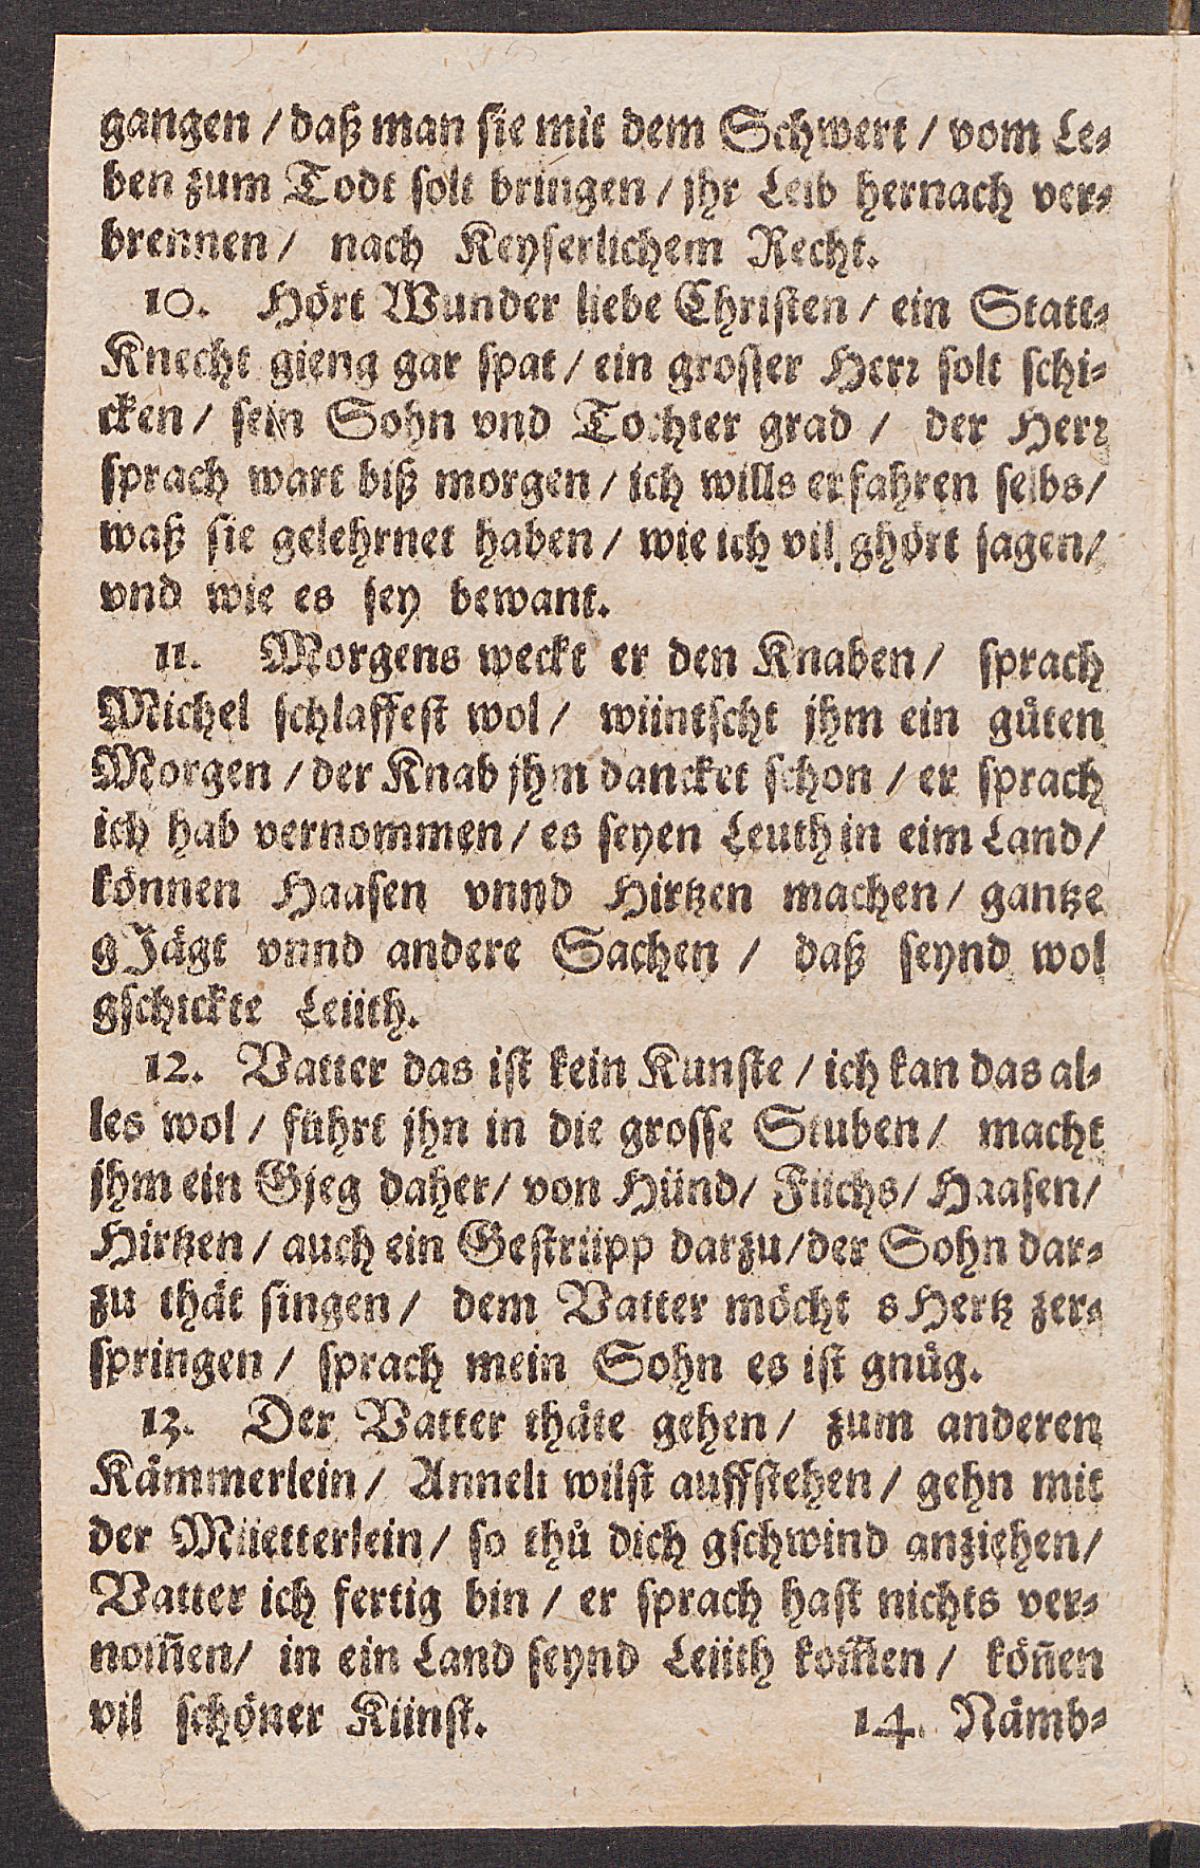 gangen / daß man sie mit dem Schwert / vom Le-
ben zum Todt solt bringen / jhr Leib hernach ver-
brennen / nach Keyserlichem Recht.
10. Hört Wunder liebe Christen / ein Statt-
Knecht gieng gar spat / ein grosser Herr solt schi-
cken / sein Sohn vnd Tochter grad / der Herr
sprach wart biß morgen / ich wills erfahren selbs /
waß sie gelehrnet haben / wie ich vil ghört sagen /
vnd wie es sey bewant.
11. Morgens weckt er den Knaben / sprach
Michel schlaffest wol / wüntscht jhm ein gůten
Morgen / der Knab jhm dancket schon / er sprach
ich hab vernommen / es seyen Leuth in eim Land /
können Haasen vnnd Hirtzen machen / gantze
gJägt vnnd andere Sachen / daß seynd wol
gschickte Leüth.
12. Vatter das ist kein Kunste / ich kan das al-
les wol / führt jhn in die grosse Stuben / macht
jhm ein Gjeg daher / von Hünd / Füchs / Haasen /
Hirtzen / auch ein Gestrüpp darzu / der Sohn dar-
zu thät singen / dem Vatter möcht s Hertz zer-
springen / sprach mein Sohn es ist gnůg.
13. Der Vatter thäte gehen / zum anderen
Kämmerlein / Anneli wilst auffstehen / gehn mit
der Müetterlein / so thů dich gschwind anziehen /
Vatter ich fertig bin / er sprach hast nichts ver-
nom̄en / in ein Land seynd Leüth kom̄en / kön̄en
vil schöner Künst. 14. Nämb-